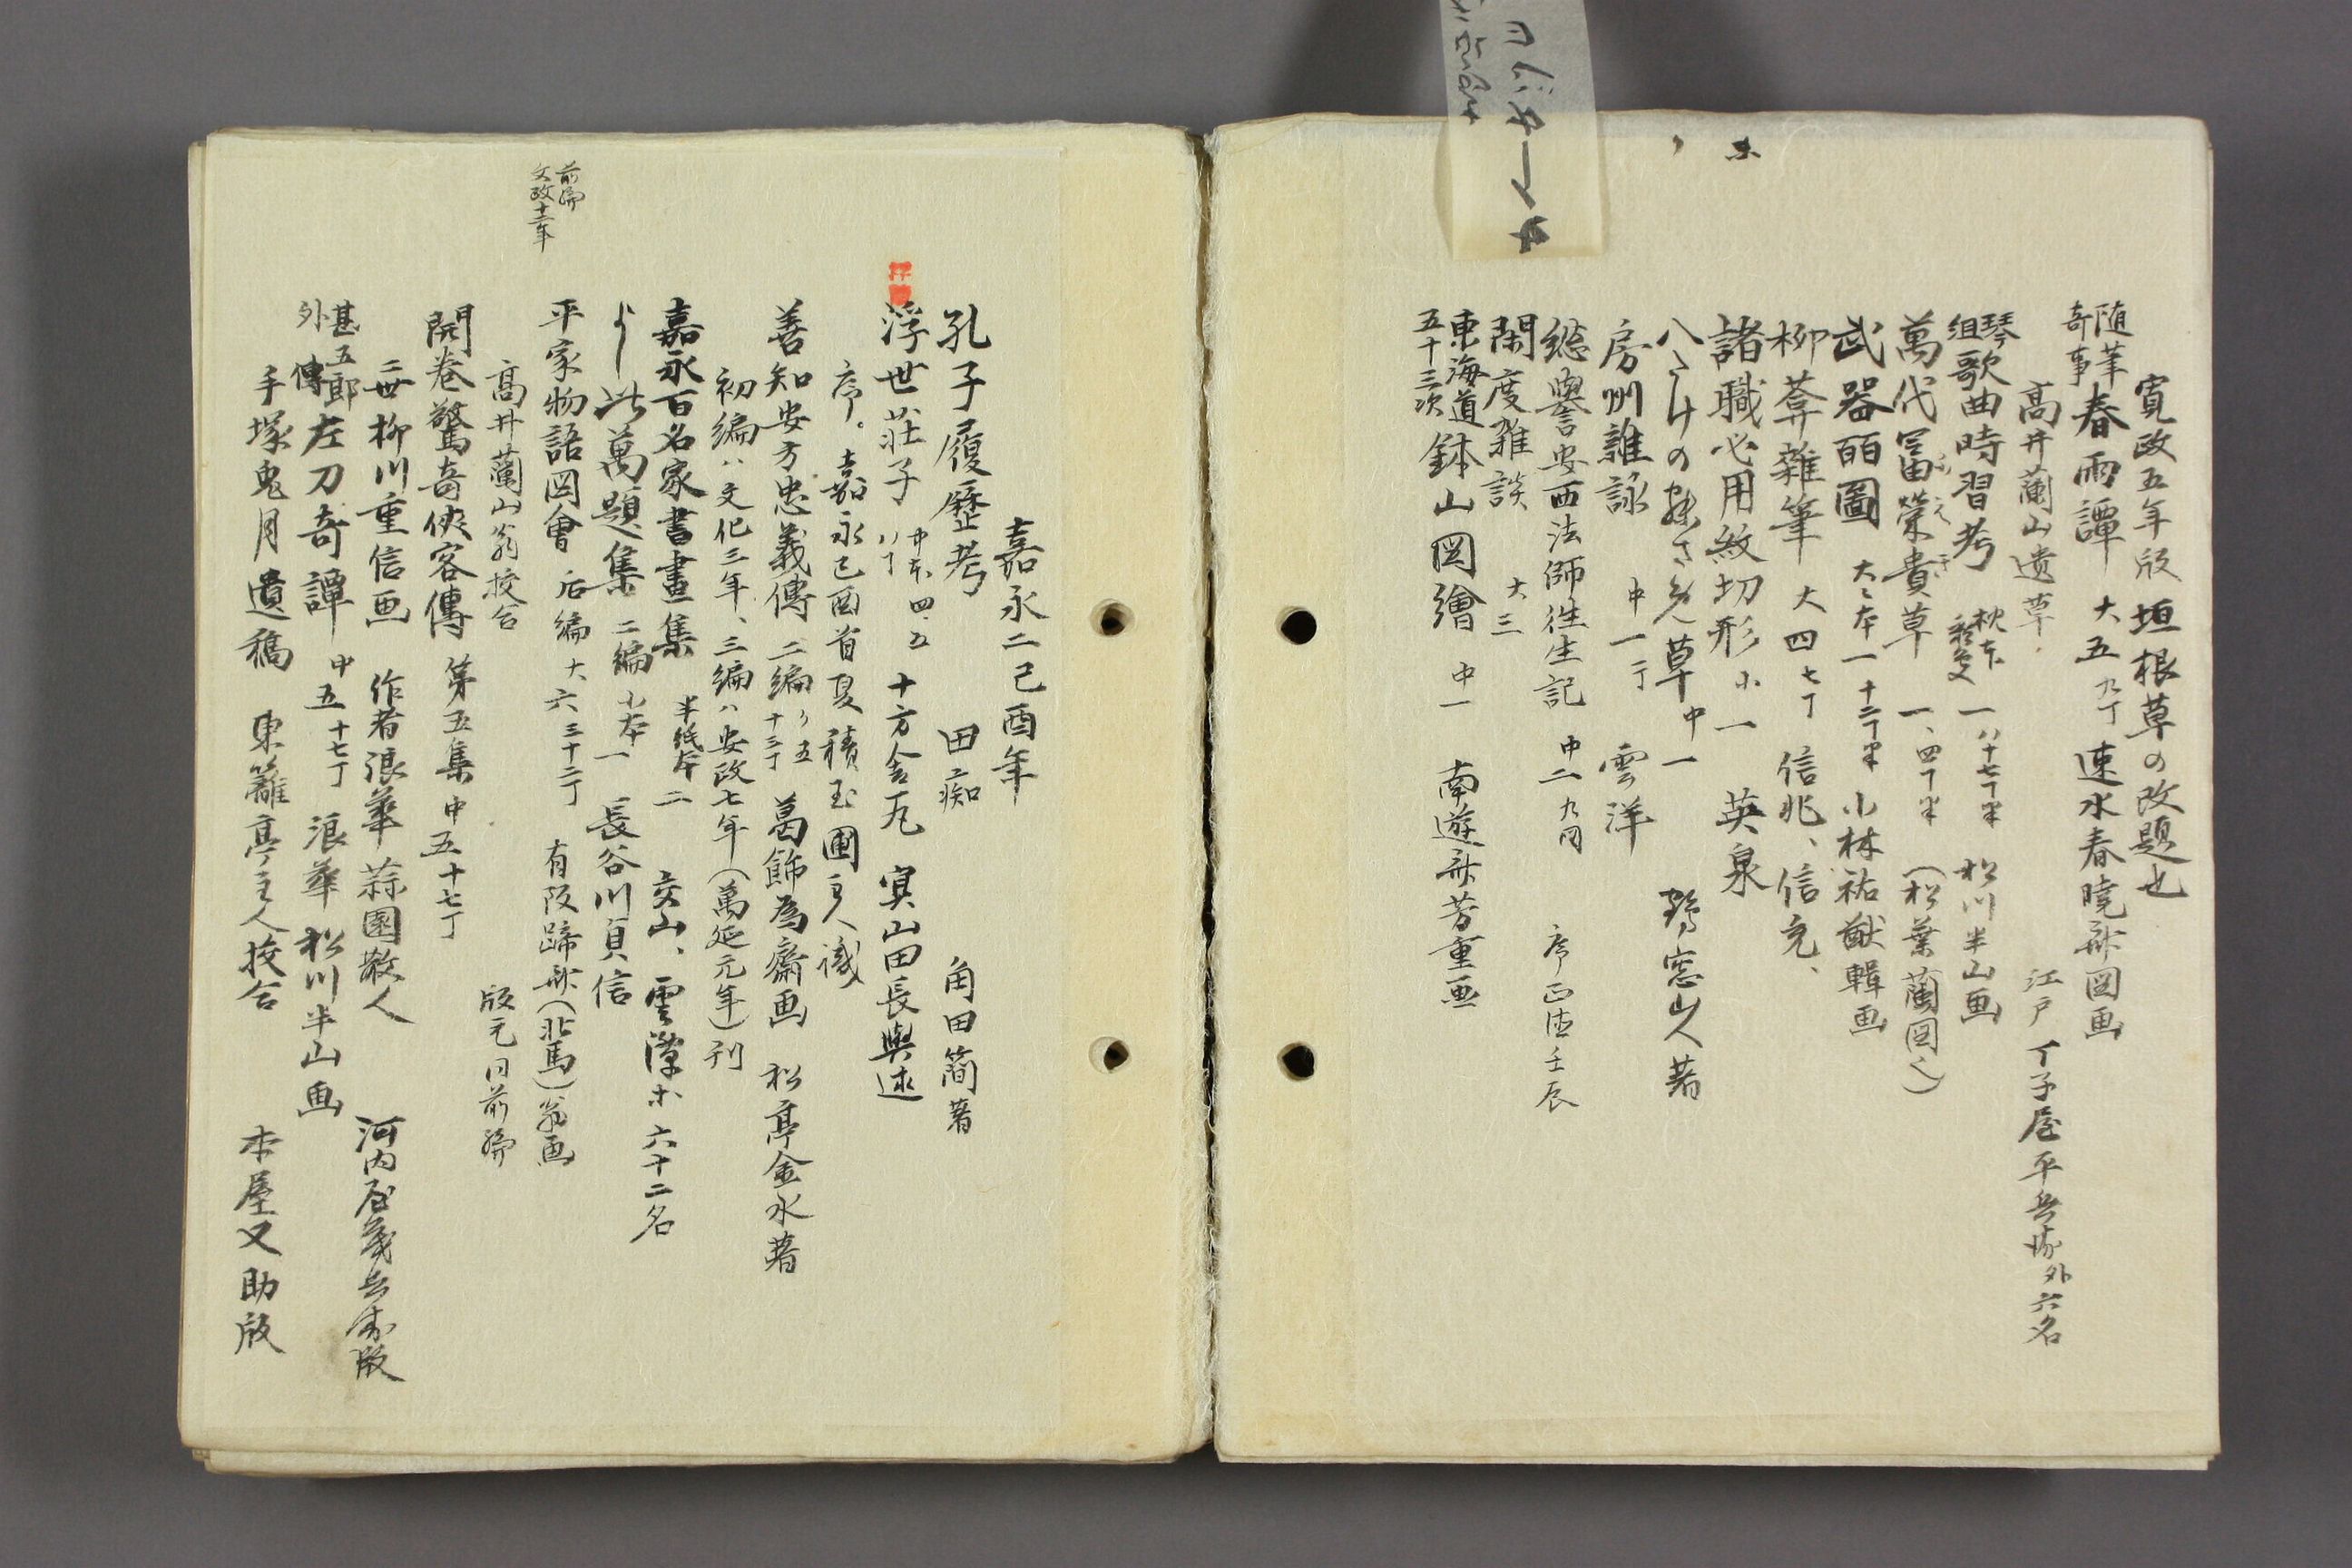 寛政五年版垣根草の改題也
随筆奇事 春雨譚 大五 九丁 速水春暁斎図画
高井蘭山遺草 江戸 丁子屋平兵衛外六名
琴組歌曲時習考 枕本 一 八十七丁半 松川半山画
萬代冨榮貴草 一、四丁半 (松葉蘭図入)
武器百圖 大本一 十二丁半 小林祐猷輯画
柳葊雜筆 大四 七丁 信兆、信充、
諸職必用紋切形 小一 英泉
草 中一 窓山人著
房州雑詠 中一丁 雲洋
總譽安西法師徃生記 中二 九同 序正徳壬辰
閑度雑談 大三
東海道五十三次 鉢山図繪 中一 南遊斎芳重画
嘉永二己酉年
孔子履歴考 田痴 角田簡著
浮世荘子 中本四、五 八丁 十方舎一丸 冥山田長輿述
序。嘉永己酉首夏積玉圃主人識
善知安方忠義傳 二編 五 十三丁 葛飾為齋画 松亭金水著
初編ハ文化三年、三編ハ安政七年(萬延元年)刊
嘉永百名家書畫集 半紙本 二 交山、雲潭ホ 六十二名
よし此萬題集 二編 小本一 長谷川貞信
前編 文政十二年
平家物語図會 后編 大六 三十二丁 有阪蹄斎(北馬)翁画
高井蘭山翁挍合 版元同前編
開巻驚奇侠客傳 第五集 中五 十七丁
二世柳川重信画 作者浪華 蒜園散人 河内屋茂兵衛版
甚五郎外傳 左刀奇譚 中五 十七丁 浪華 松川半山画
手塚兎月遺稿 東籬亭主人挍合 本屋又助版